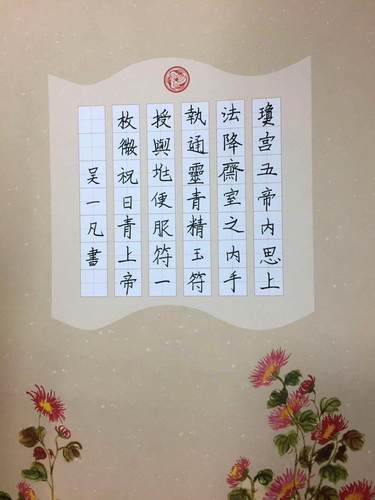 瓊宫五帝内思上
法降齋室之内手
執通靈青精玉符
授與地便服符一
枚微祝日青上帝
吴一凡書